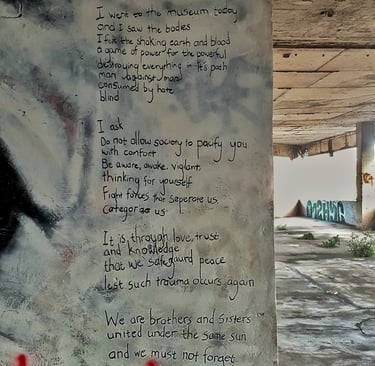 I went to the museum today
and I saw the bodies
I felt the shaking earth and blood
a game of power for the powerful
destroying everything in it's path
man against man
consumed by hate
blind
I ask
Do not allow society to pacify you
with comfort
Be aware, awake, vigilant,
thinking for yourself
Fight forces that seperate us,
categorise us
It is through love, trust
and knowledge
that we safegaurd peace
lest such trauma occurs again
We are brothers and sisters
united under the same sun
and we must not forget